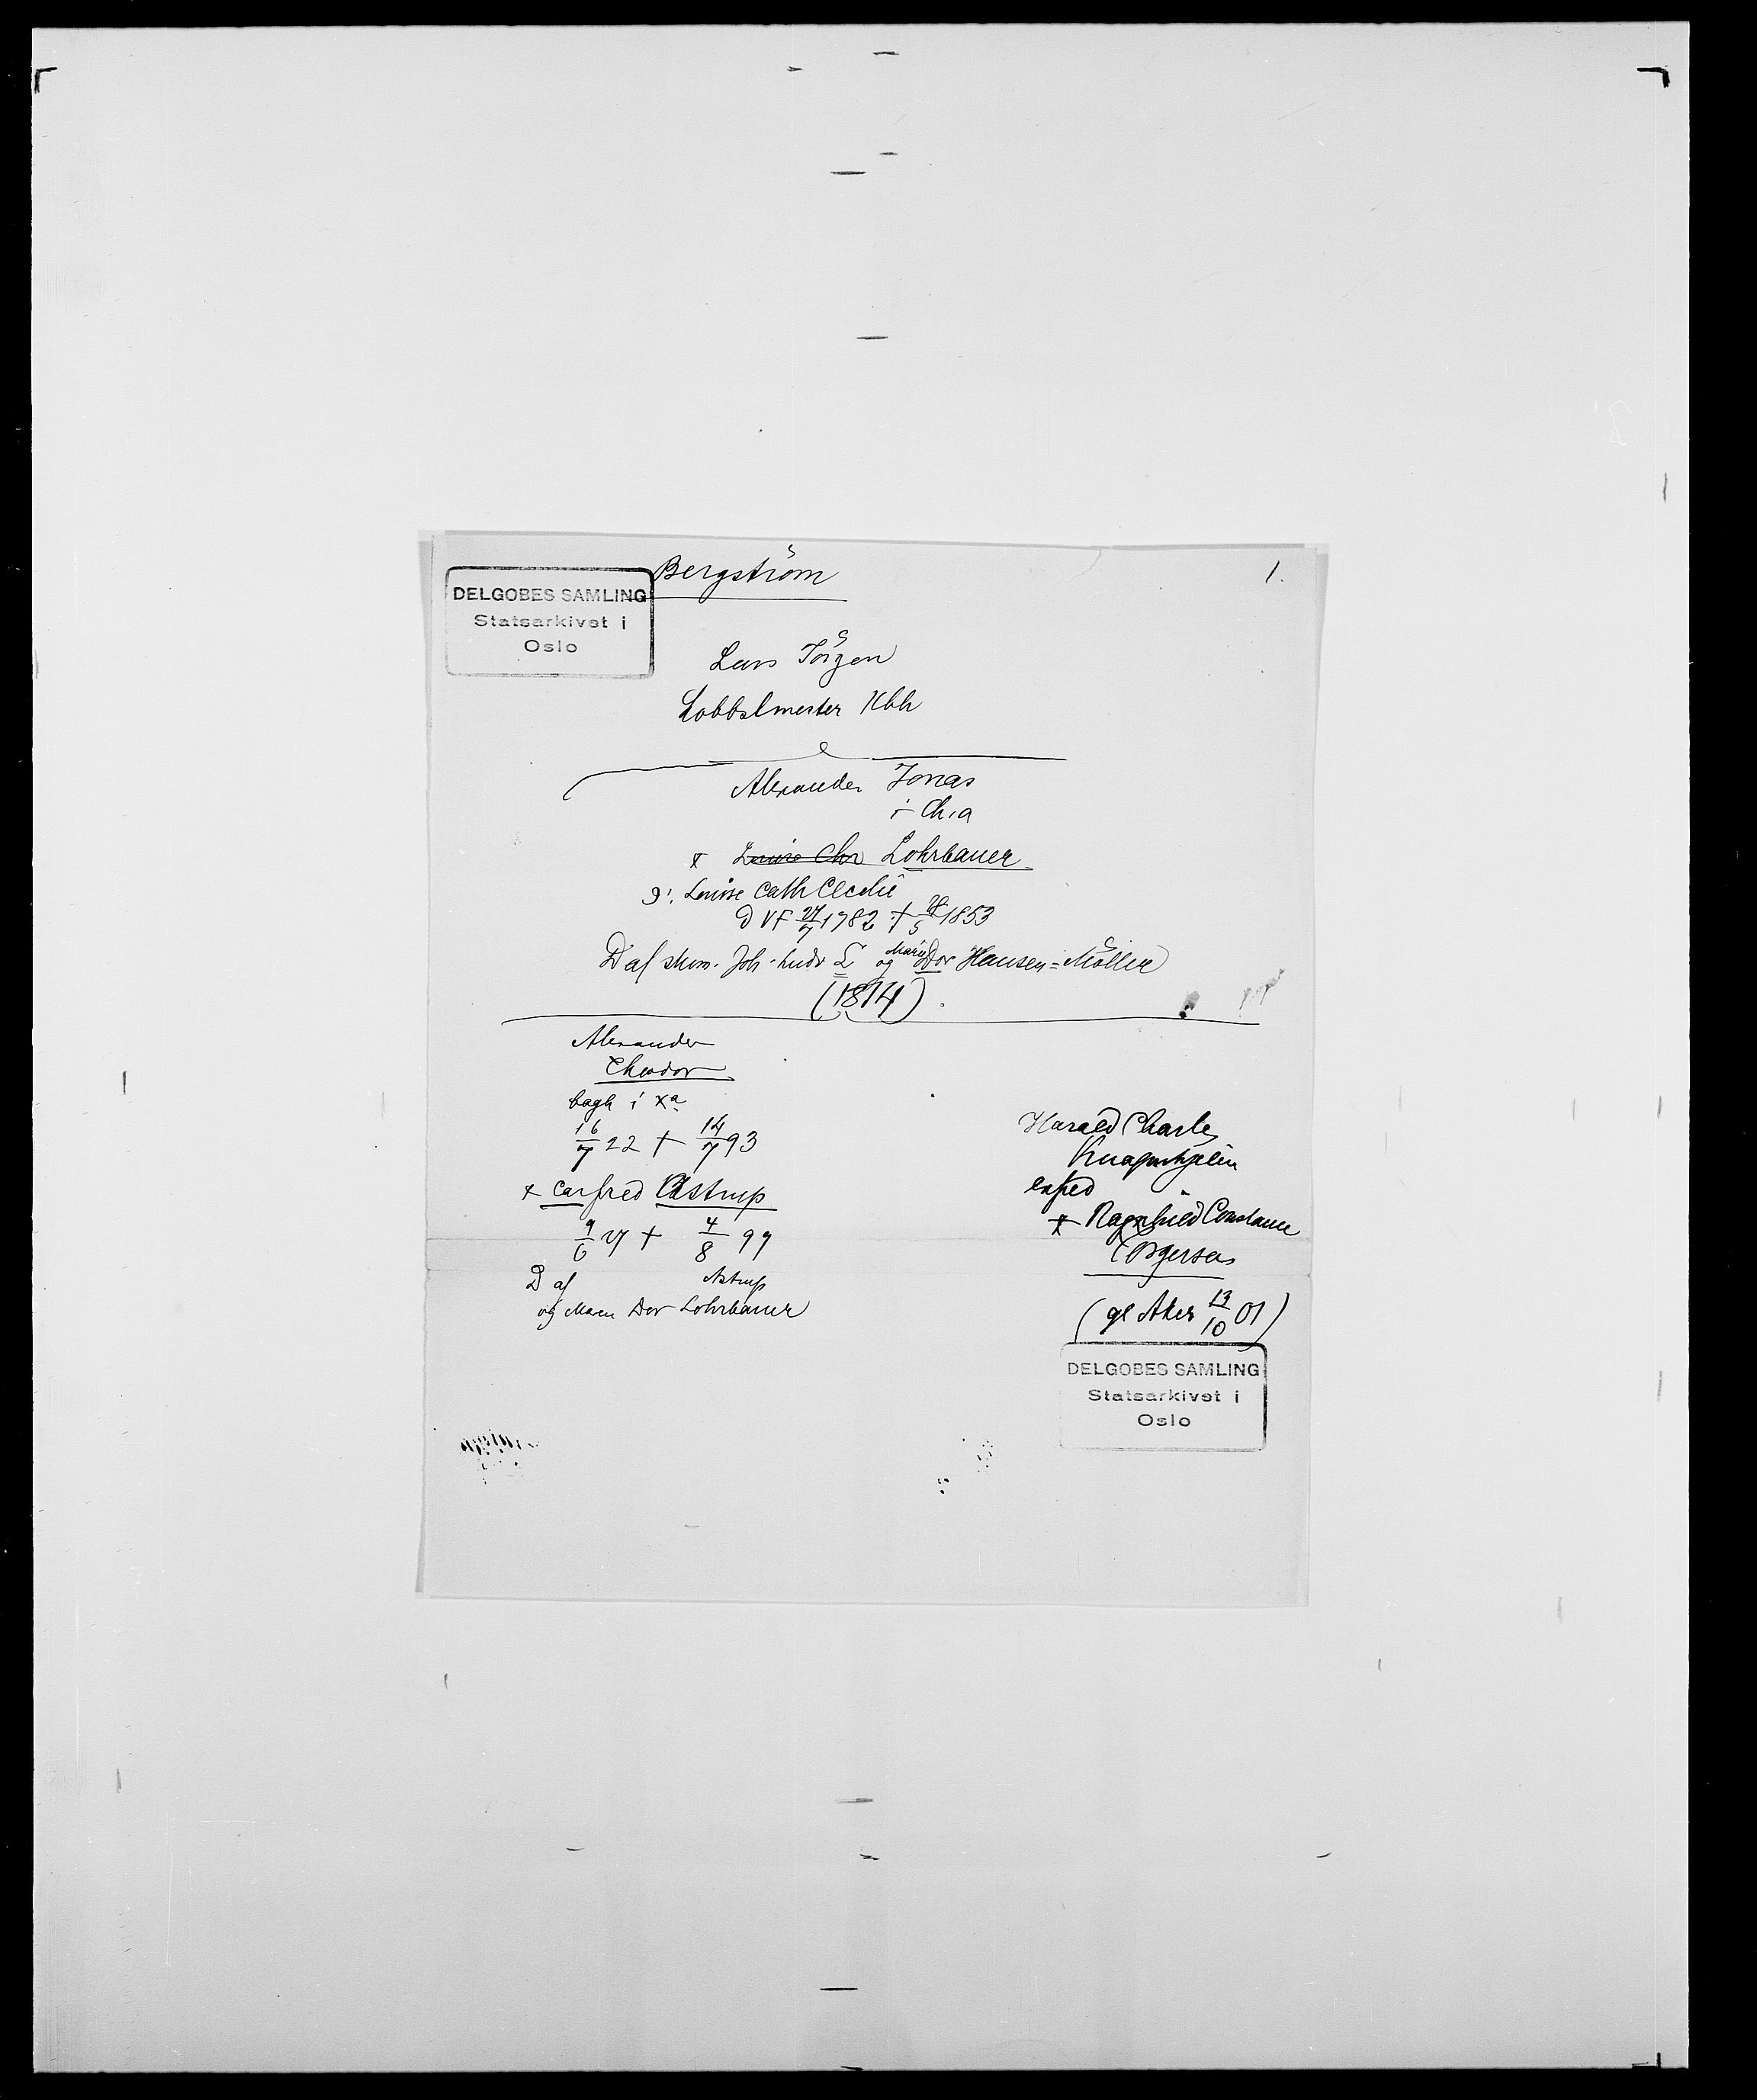 Bergström
1.
DELGOBES SAMLING
Statsarkivet i
Oslo
Lars Jörgen
Kbh
Alexander Jonas
i Ch.a
x Louise Chr Lohrbauer
ɔ: Louise Cath Cecilie
D VF 27/7 1782 † 28/5 1853
D af Joh. Ludv L og Marie Dor Hansen=Möller
(1814).
Alexander
Theodor
i Xa
16/7 22 † 14/7 93
x Astrup
9/6 27 † 4/8 99
D af Astrup
og Maren Dor Lohrbauer
Harald Charles
Knagenhjelm
exped
x Ragnhild Constance
Torgersen
(gl Aker 13/10 01)
DELGOBES SAMLING
Statsarkivet i
Oslo